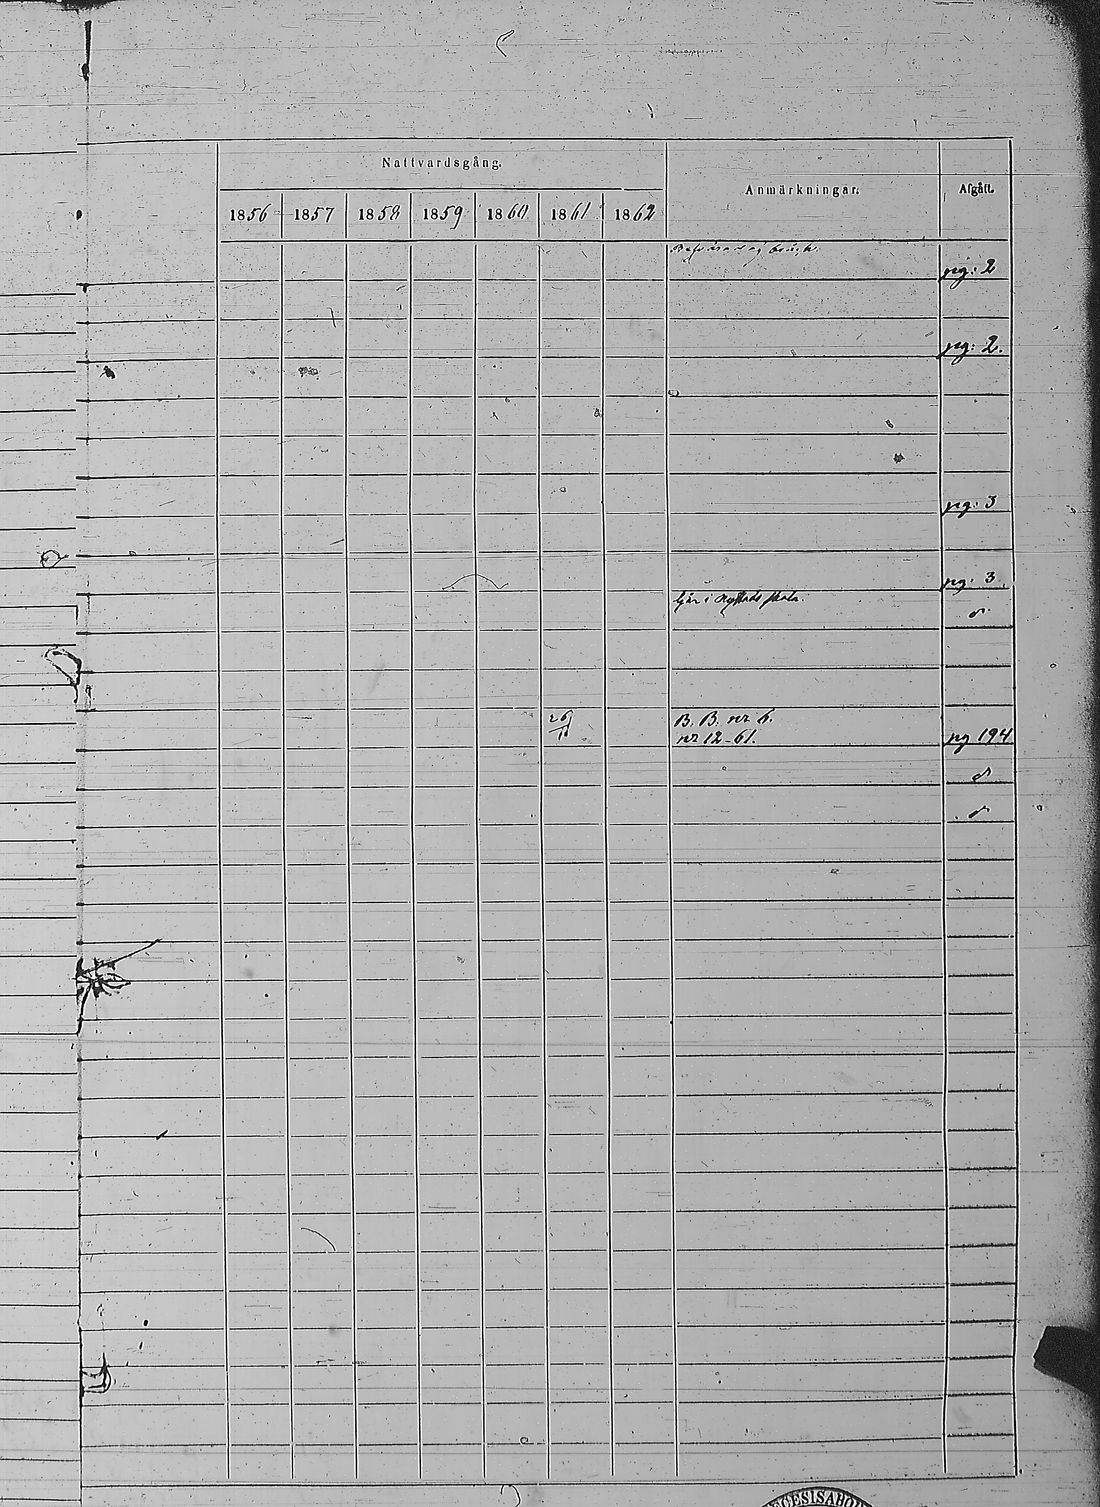 Nattvardsgång.
Anmärkningar.
Afgått.
1856 1857 1858 1859 1860 1861 1862
pg: 2
pg: 2.
pg: 3
pg: 3.
i skola.
26 B. B. nr 6.
nr 12-61. pg 194